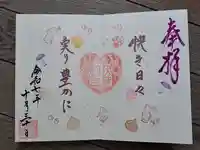 奉拝
悦き日々
実り豊かに
令和七年
十月三十日